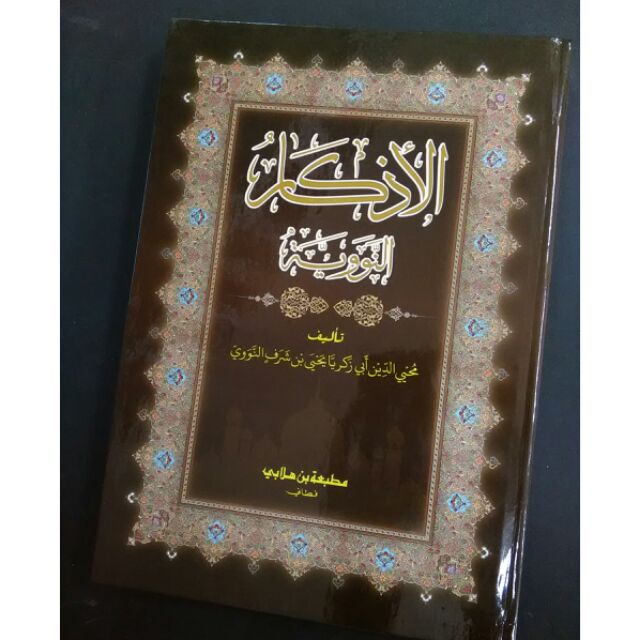 الأذكارُ
النَّوَوِيَّةُ
تأليف
مُحْيِي الدِّيْن أَبِي زَكَرِيَّا يَحْيَى بن شَرَفِ النَّوَوِيّ
مطبعة بن هلابي
فطاني